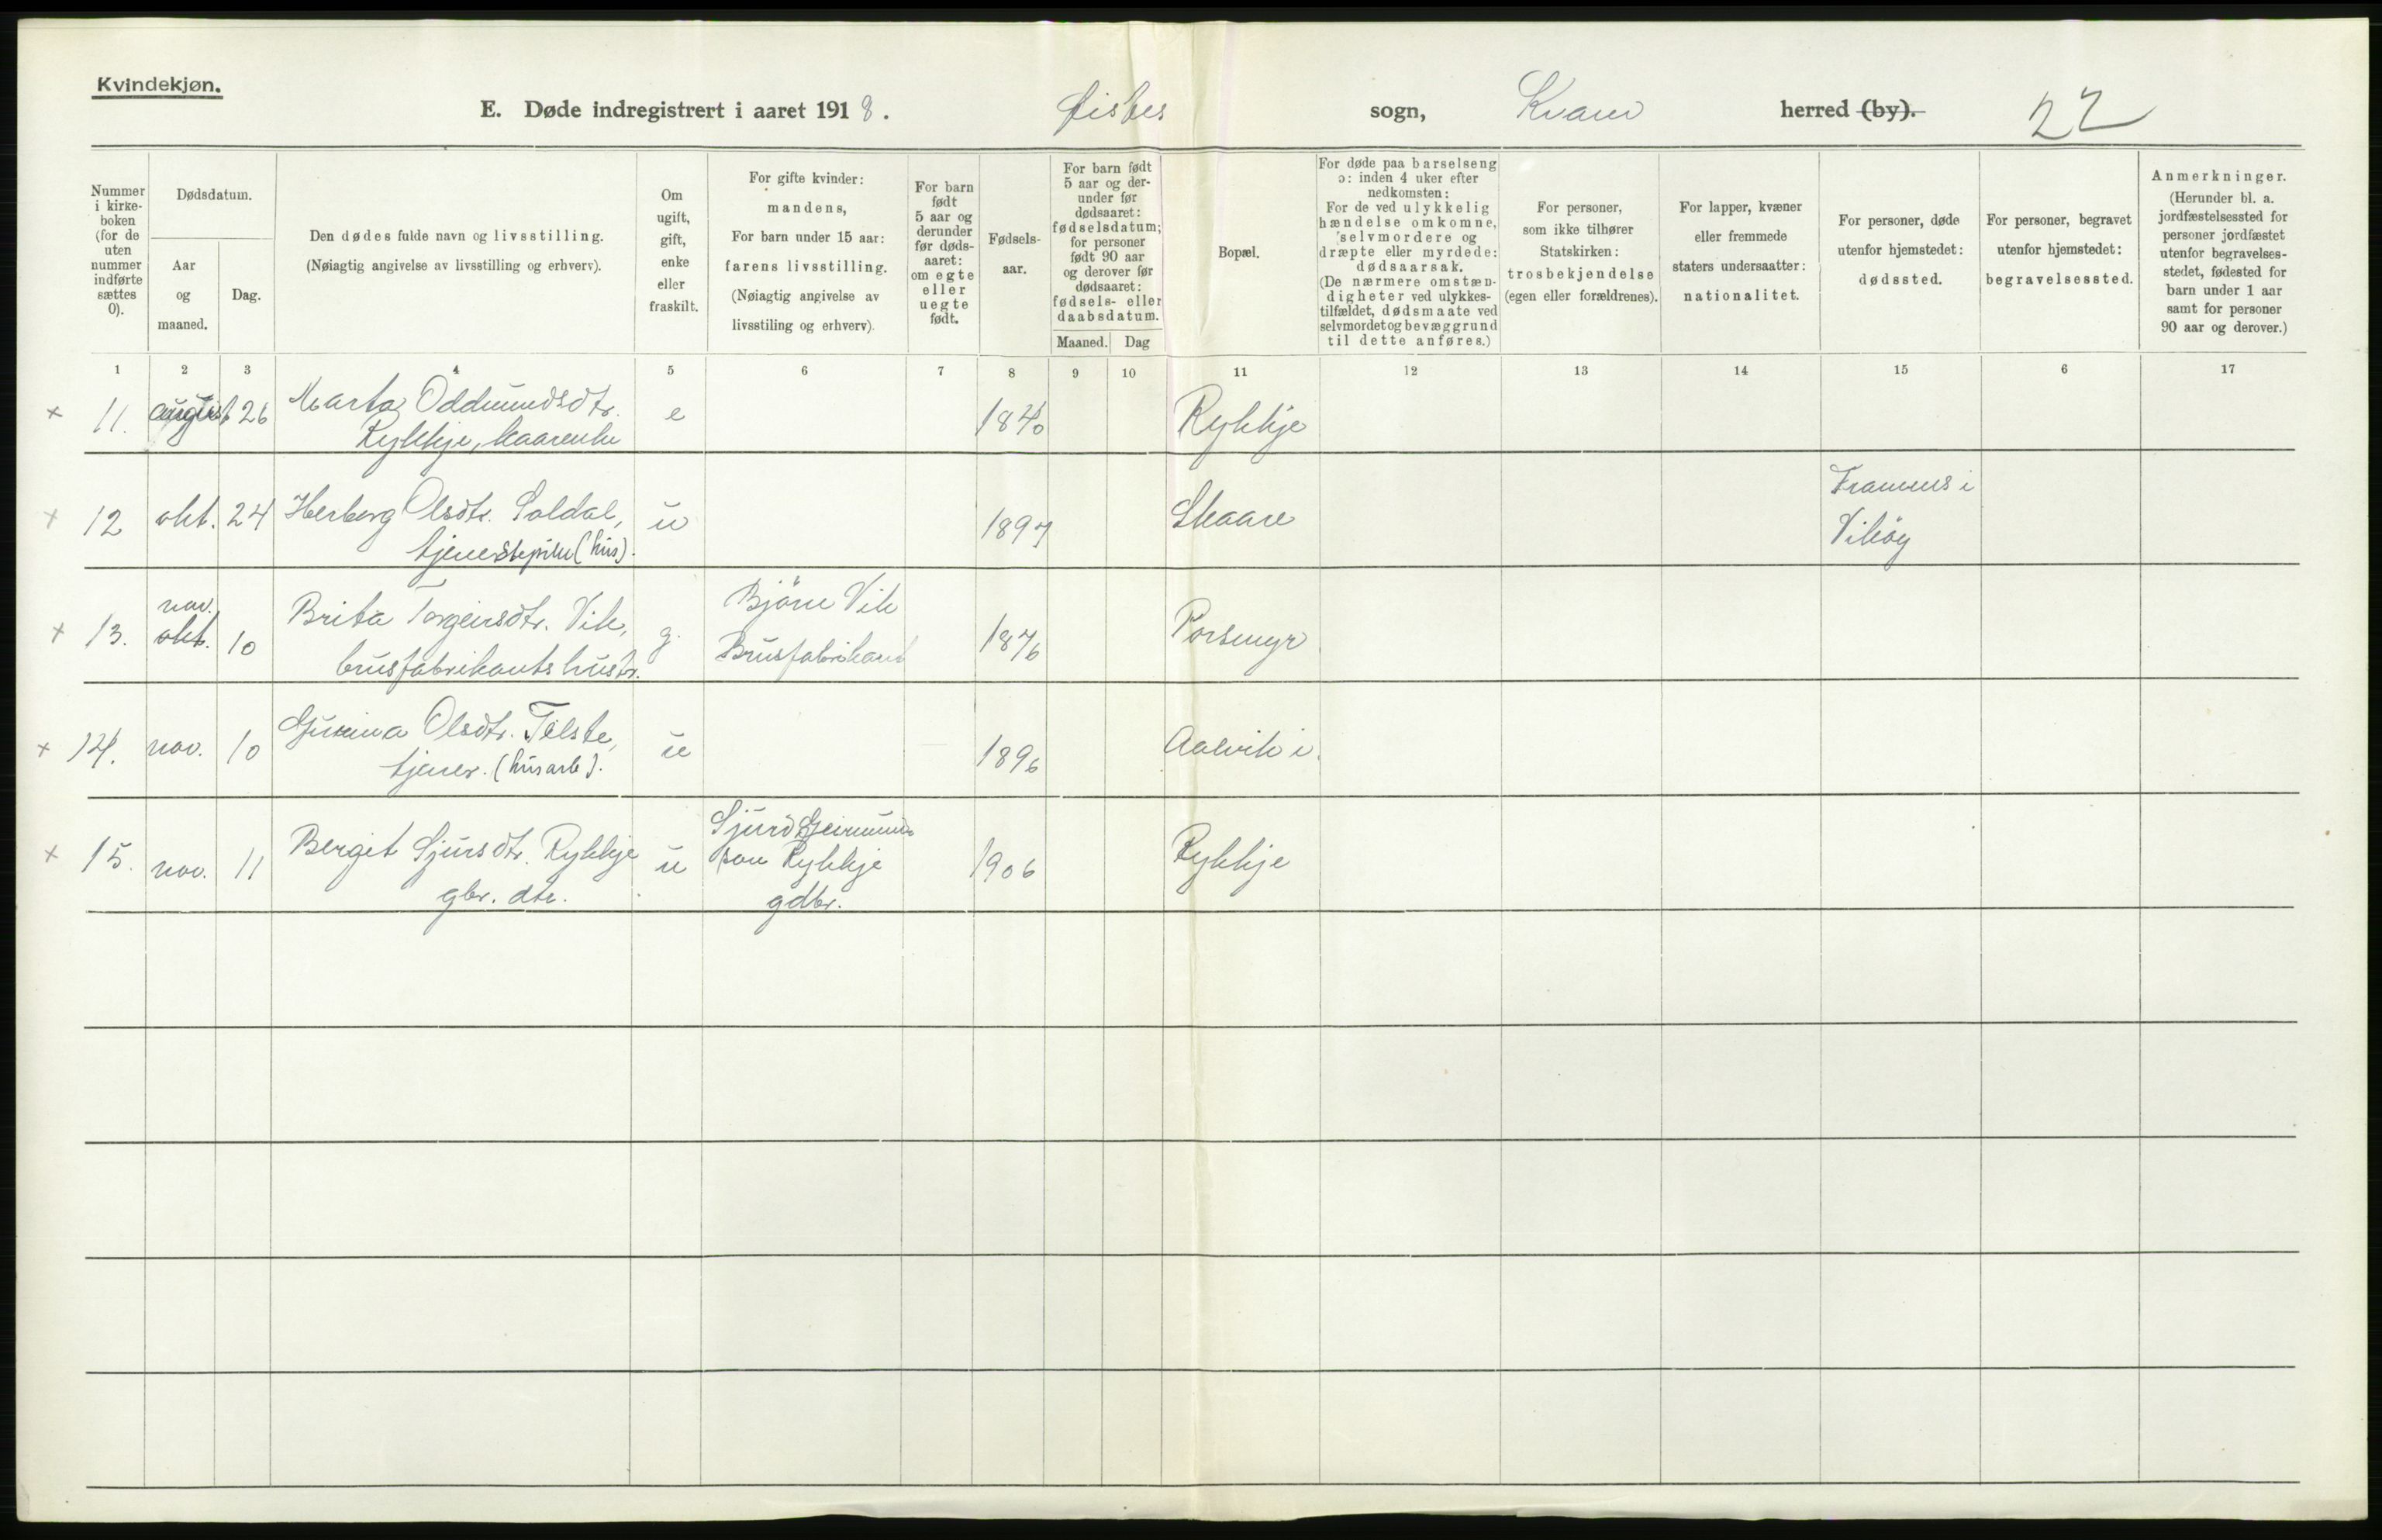 Kvindekjøn.
E. Døde indregistrert i aaret 1918. Øistes sogn, Kvam herred (by). 22
Nummer i kirke- boken (for de uten nummer indførte sættes 0).
Dødsdatum.
Aar og maaned.
Dag.
Den dødes fulde navn og livsstilling.
(Nøiagtig angivelse av livsstilling og erhverv).
Om ugift, gift, enke eller fraskilt.
For gifte kvinder:
mandens,
For barn under 15 aar:
farens livsstilling.
(Nøiagtig angivelse av
livsstiling og erhverv).
For barn født 5 aar og derunder før døds- aaret: om egte eller uegte født.
Fødsels- aar.
For barn født
5 aar og der-
under før
dødsaaret:
fødselsdatum;
for personer
født 90 aar
og derover før
dødsaaret:
fødsels- eller
daabsdatum.
Maaned. Dag
Bopæl.
For døde paa barselseng
ɔ: inden 4 uker efter
nedkomsten:
For de ved ulykkelig
hændelse omkomne,
selvmordere og
dræpte eller myrdede:
dødsaarsak.
(De nærmere omstæn-
digheter ved ulykkes-
tilfældet, dødsmaate ved
selvmordet og bevæggrund
til dette anføres.)
For personer,
som ikke tilhører
Statskirken:
trosbekjendelse
(egen eller forældrenes).
For lapper, kvæner
eller fremmede
staters undersaatter:
nationalitet.
For personer, døde
utenfor hjemstedet:
dødssted.
For personer, begravet
utenfor hjemstedet:
begravelsessted.
Anmerkninger.
(Herunder bl. a.
jordfæstelsessted for
personer jordfæstet
utenfor begravelses-
stedet, fødested for
barn under 1 aar
samt for personer
90 aar og derover.)
1 2 3 4 5 6 7 8 9 10 11 12 13 14 15 6 17
× 11. august 26 Marta Oddmundsdtr. e 1840 Rykkje
Rykkje, kaarenke
× 12 okt. 24 Herborg Olsdtr. Soldal, u 1897 Skaare Framnes i
tjenerstepike (hus). Vikøy
× 13. nov. okt. 10 Brita Torgeirsdtr. Vik, g. Björn Vik 1876 Porsmyr
brusfabrikants hustr. Brusfabrikant
× 14. nov. 10 Gunina Olsdtr. Tilste, u 1896 Aalvik i.
tjener. (husarb).
× 15. nov. 11 Berget Sjursdtr. Rykkje u Sjurd Geirmund- 1906 Rykkje
gbr. dtr. son Rykkje
gdbr.